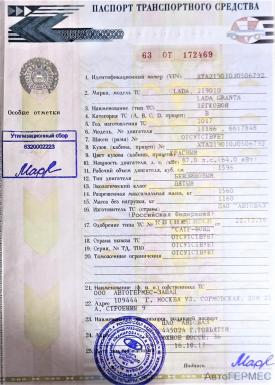 ПАСПОРТ ТРАНСПОРТНОГО СРЕДСТВА
63 ОТ 172469
Особые отметки
Утилизационный сбор
6320002223
1. Идентификационный номер (VIN)
2. Марка, модель ТС LADA, 219010
LADA GRANTA
3. Наименование (тип ТС) ЛЕГКОВОЙ
4. Категория ТС (А, В, С, D, прицеп) B
5. Год изготовления ТС 2017
6. Модель, № двигателя 11186 , 6617848
7. Шасси (рама) № ОТСУТСТВУЕТ
8. Кузов (кабина, прицеп) №
9. Цвет кузова (кабины, прицепа) КРАСНЫЙ
10. Мощность двигателя, л. с. (кВт)
11. Рабочий объем двигателя, куб. см 1596
12. Тип двигателя БЕНЗИНОВЫЙ
13. Экологический класс ПЯТЫЙ
14. Разрешенная максимальная масса, кг 1560
15. Масса без нагрузки, кг 1160
16. Изготовитель ТС (страна) ПАО "АВТОВАЗ"
(Российская Федерация)
17. Одобрение типа ТС №
"САТР-ФОНД"
18. Страна вывоза ТС ОТСУТСТВУЕТ
19. Серия, № ТД, ТПО ОТСУТСТВУЕТ
20. Таможенные ограничения ОТСУТСТВУЕТ
21. Наименование (ф. и. о.) собственника ТС
ООО АВТОГЕРМЕС-ЗАПАД
22. Адрес 109444 Г. МОСКВА УЛ. СОРМОВСКАЯ
А, СТРОЕНИЕ 9
ПАО "АВТОВАЗ"
445024 Г. ТОЛЬЯТТИ
ЮЖНОЕ ШОССЕ, 36
16.10.17
Подпись
АвтоГЕРМЕС